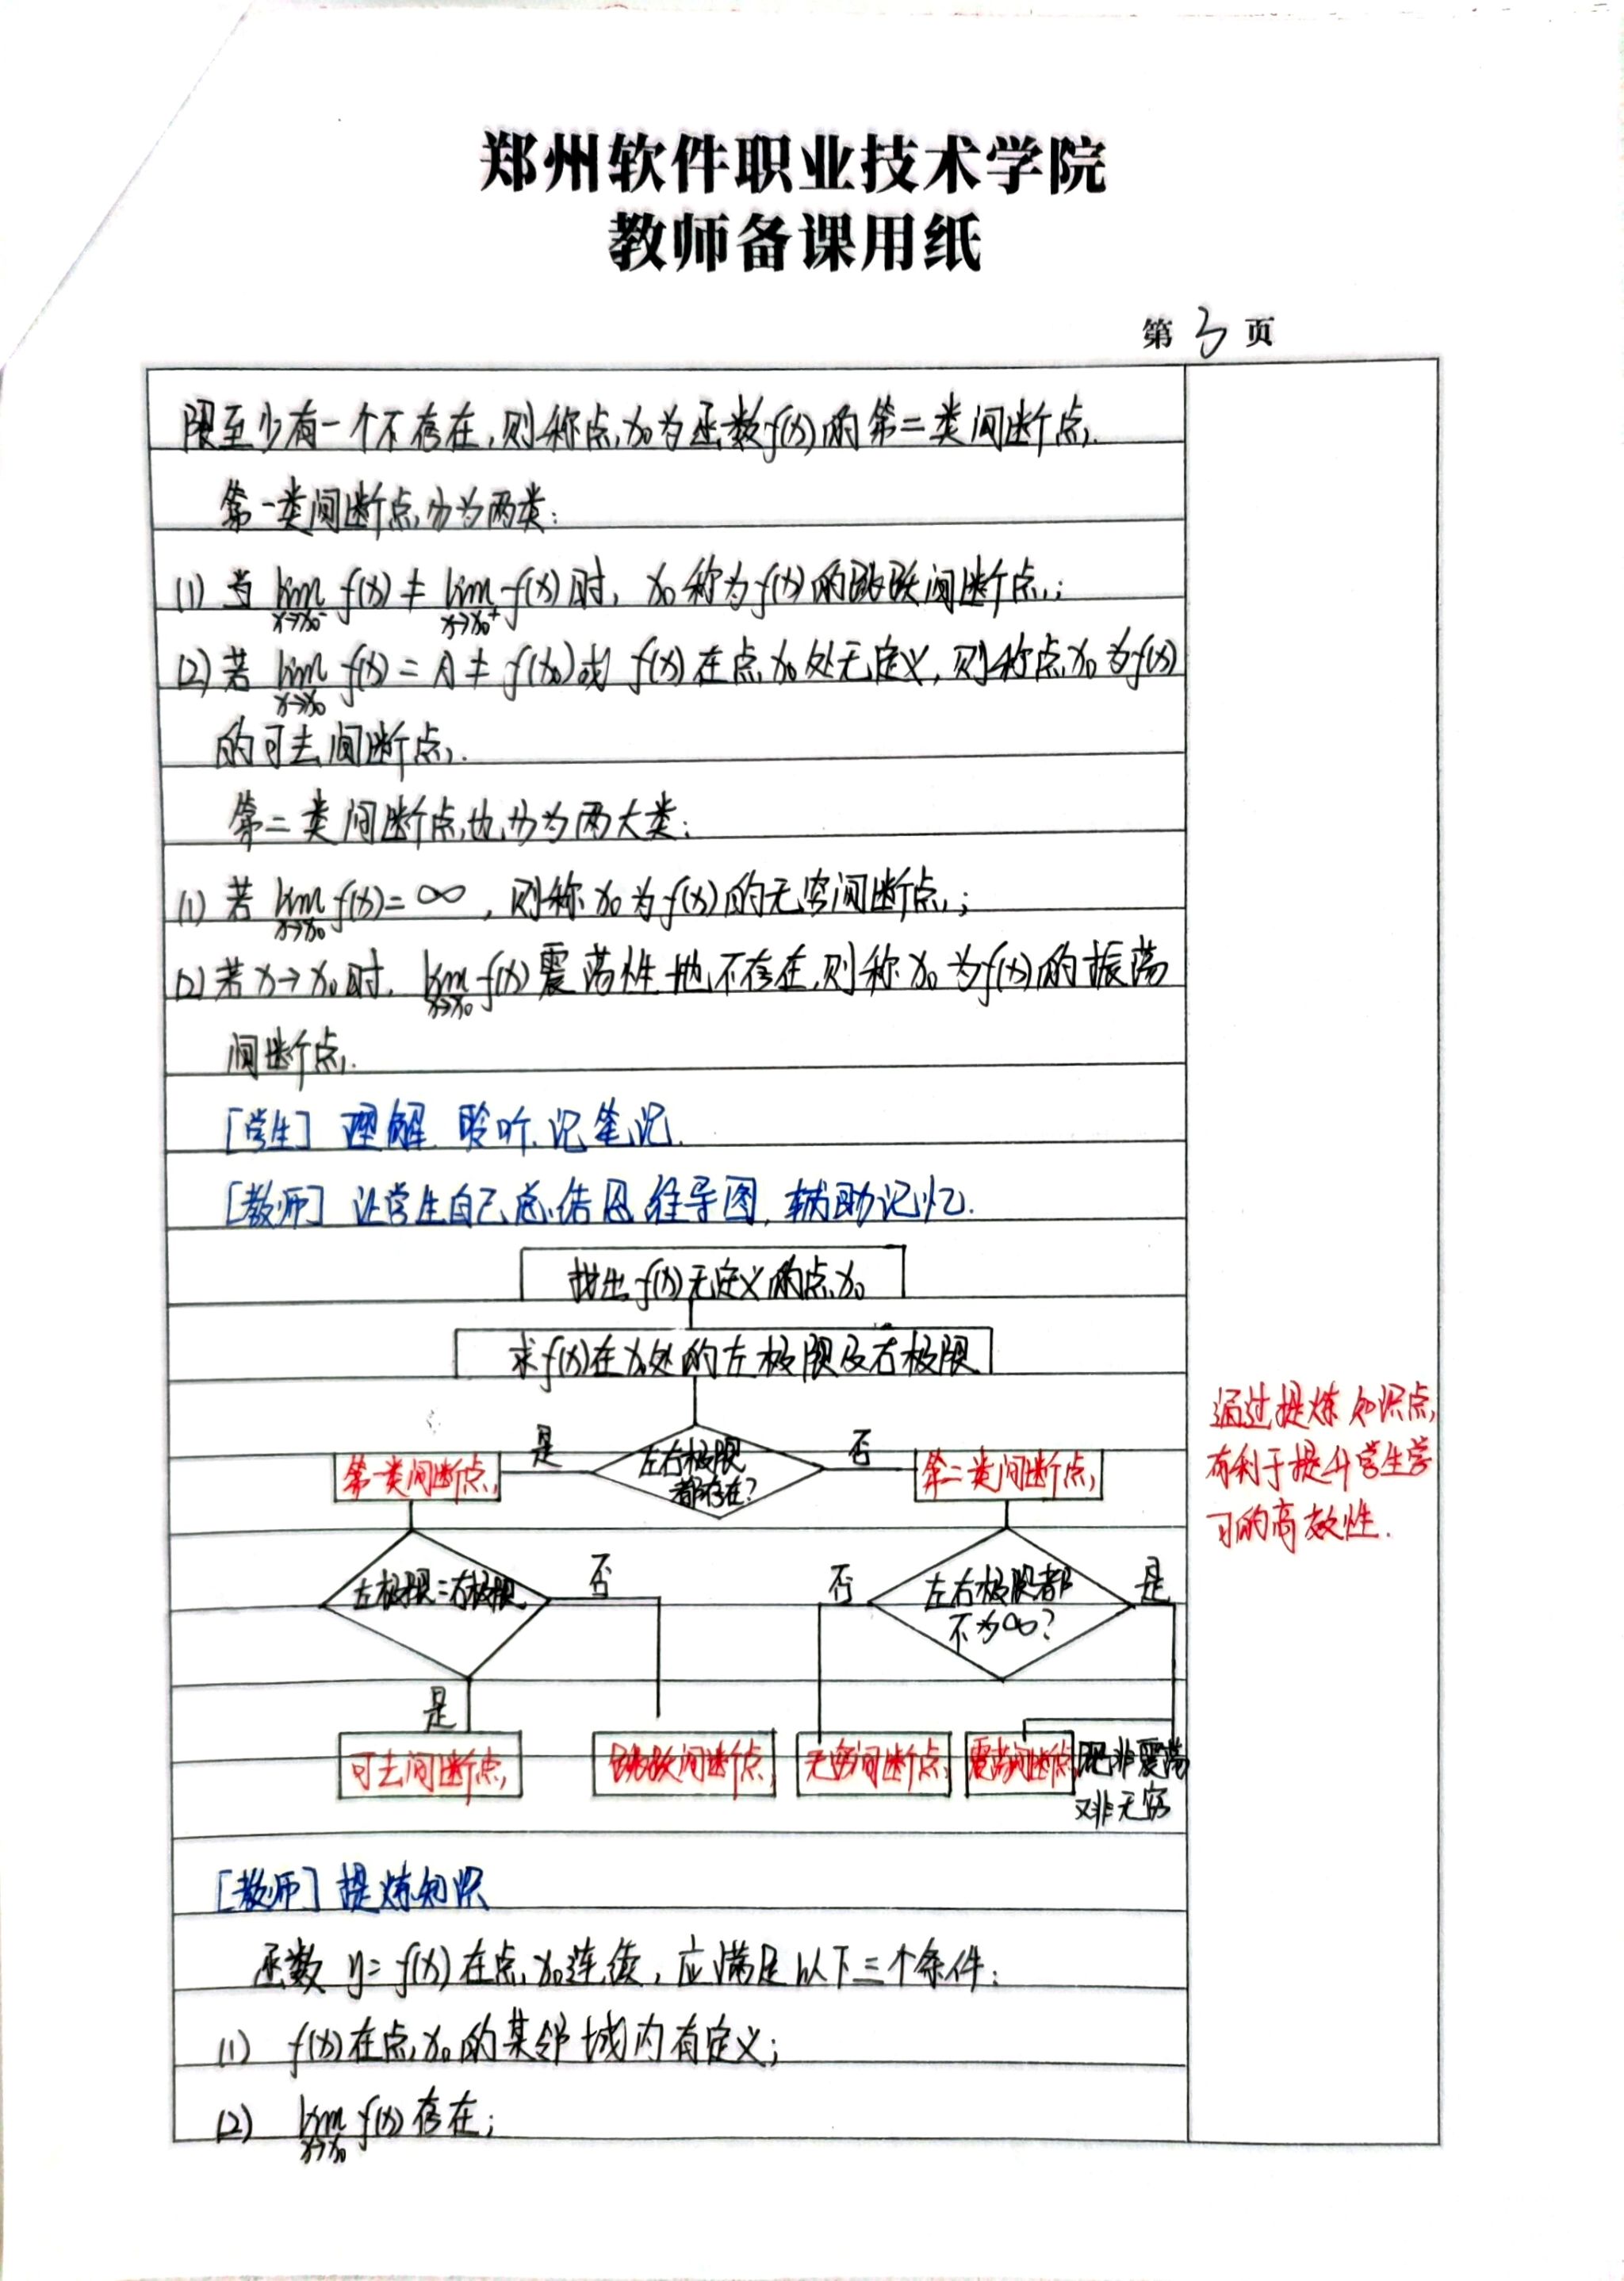 郑州软件职业技术学院
教师备课用纸
第 3 页
限至少有一个不存在,则称点x₀为函数f(x)的第二类间断点.
第一类间断点分为两类:
(1) 当 lim f(x) ≠ lim f(x)时, x₀称为f(x)的跳跃间断点;
x→x₀⁻ x→x₀⁺
(2) 若 lim f(x) = A ≠ f(x₀)或 f(x)在点x₀处无定义,则称点x₀为f(x)
x→x₀
的可去间断点.
第二类间断点也分为两大类:
(1) 若 lim f(x)= ∞ ,则称x₀为f(x)的无穷间断点;
x→x₀
(2) 若x→x₀时, lim f(x)震荡性地不存在,则称x₀为f(x)的振荡
x→x₀
间断点.
[学生] 理解.聆听.记笔记.
[教师] 让学生自己总结思维导图,辅助记忆.
找出f(x)无定义的点x₀
求f(x)在x₀处的左极限及右极限
第一类间断点
是
左右极限
都存在?
否
第二类间断点
左极限=右极限
否
否
左右极限都
不为∞?
是
是
可去间断点
跳跃间断点
无穷间断点
震荡间断点
既非震荡
又非无穷
通过提炼知识点,
有利于提升学生学
习的高效性.
[教师] 提炼知识
函数 y= f(x)在点x₀连续,应满足以下三个条件:
(1) f(x)在点x₀的某邻域内有定义;
(2) lim f(x)存在;
x→x₀